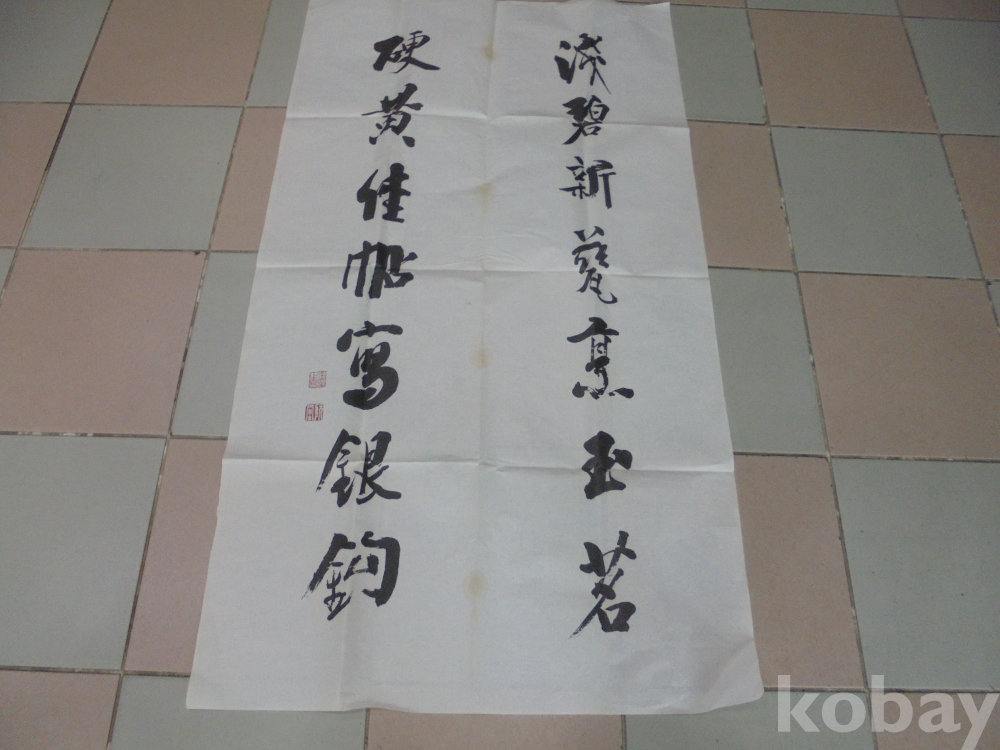 淺碧新甆烹玉茗
硬黃佳帖寫銀鈎
kobay